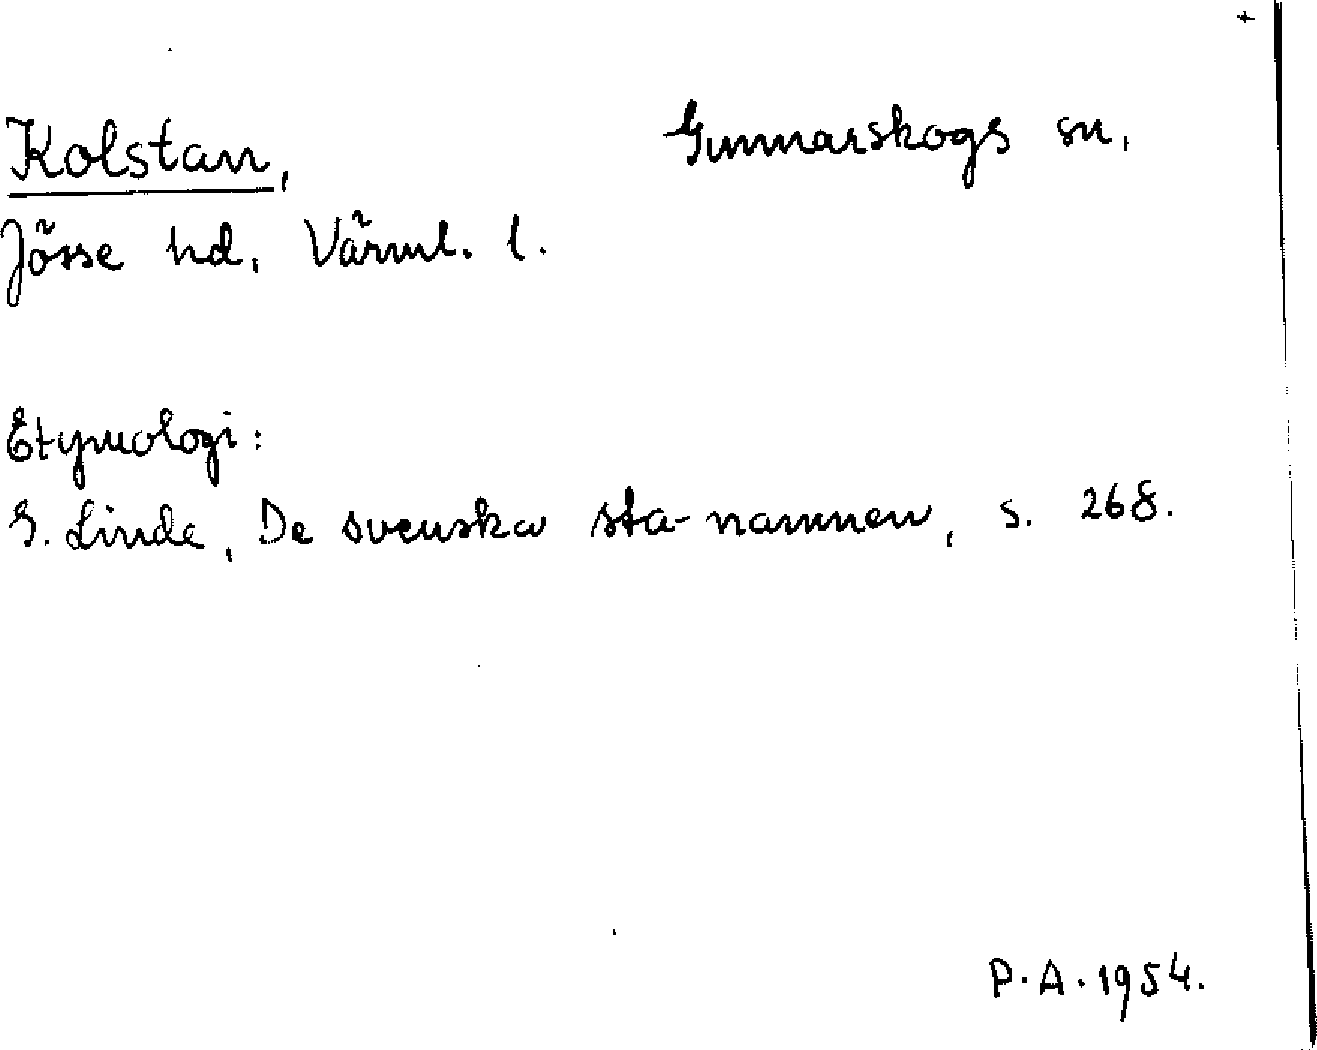 Kolstan, Gunnarskogs sn,
Jösse hd, Värml. l.
Etymologi:
G. Linde, De svenska sta-namnen, s. 268.
P.A. 1954.